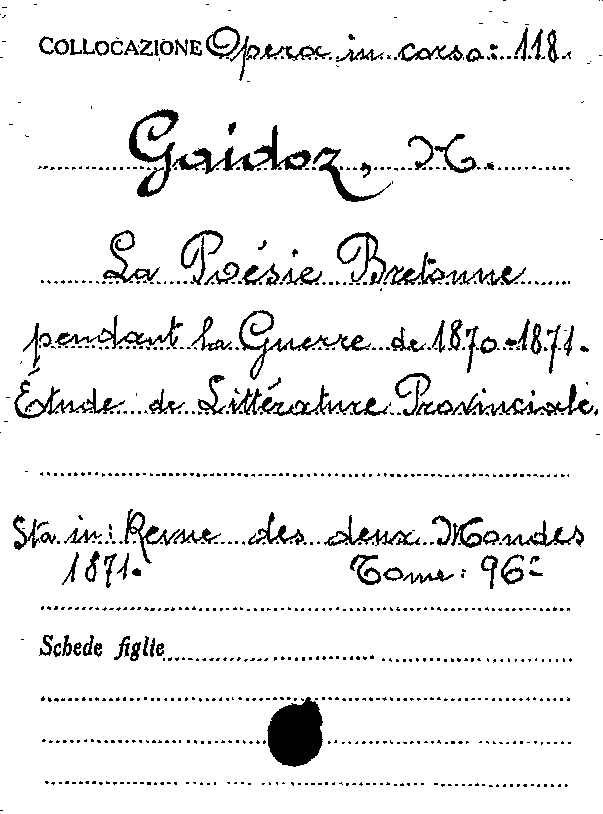 COLLOCAZIONE Opera in corso: 118.
Gaidoz, H.
La Poésie Bretonne
pendant la Guerre de 1870-1871.
Étude de Littérature Provinciale.
Sta in: Revue des deux Mondes
1871. Tome: 96º
Schede figlie